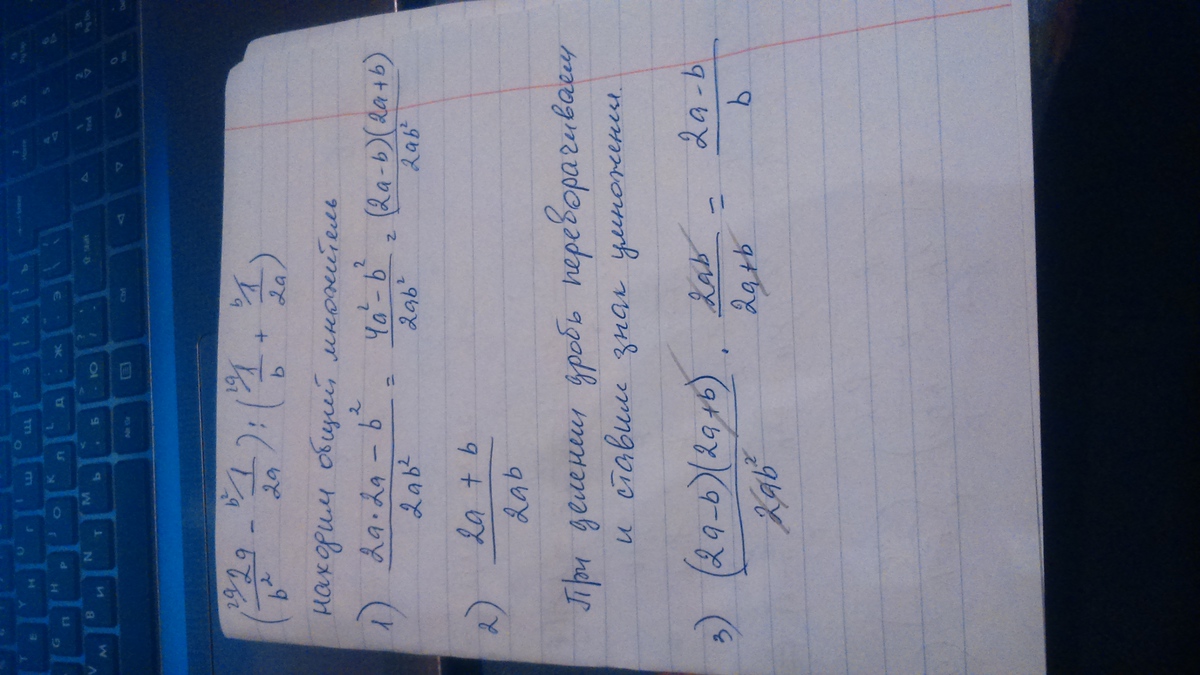 (²ᵃ⁄2a/b² - ᵇ²⁄1/2a) : (²ᵃ⁄1/b + ᵇ⁄1/2a)
находим общий множитель
1) (2a·2a - b²)/2ab² = (4a² - b²)/2ab² = (2a-b)(2a+b)/2ab²
2) (2a + b)/2ab
При делении дробь переворачиваем
и ставим знак умножения.
3) (2a-b)(2a+b)/2ab² · 2ab/(2a+b) = (2a-b)/b